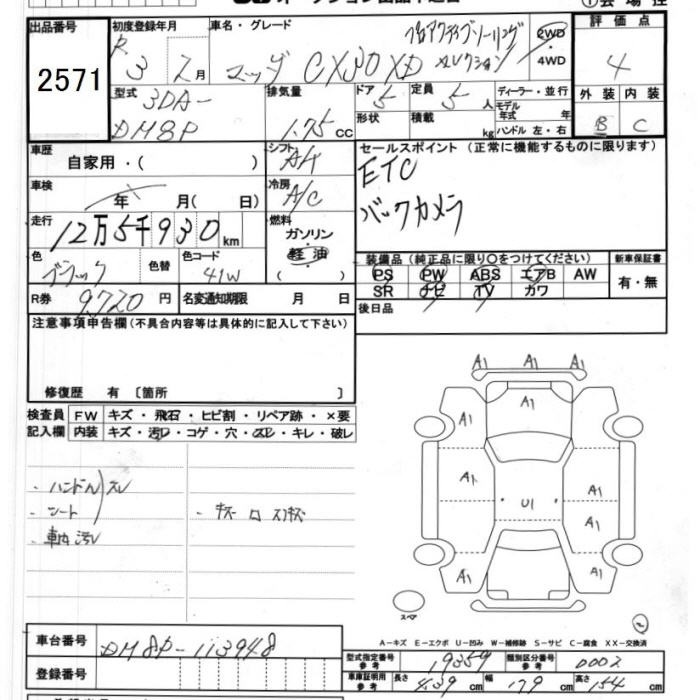 出品番号
2571
初度登録年月
R 3 2月
車名・グレード
マツダ CX30 XD
セレクション
2WD
・
4WD
評価点
4
外装 内装
B C
型式
3DA-
DM8P
排気量
1.75 CC
ドア
5
形状
定員
5 人
積載
kg
ディーラー・並行
モデル
年式 年
ハンドル 左・右
車歴
自家用・( )
シフト
A/T
車検
年 月( 日)
冷房
A/C
走行
12万5千930km
燃料
ガソリン
・
軽油
( )
色
ブラック
色替
色コード
41W
R券
9,720円
名変通知期限 月 日
セールスポイント(正常に機能するものに限ります)
ETC
バックカメラ
装備品(純正品に限り〇をつけてください)
PS PW ABS エアB AW
SR ナビ TV カワ
新車保証書
有・無
後日品
注意事項申告欄(不具合内容等は具体的に記入して下さい)
修復歴 有 〔箇所 〕
検査員
記入欄
FW キズ・飛石・ヒビ割・リペア跡・×要
内装 キズ・汚レ・コゲ・穴・スレ・キレ・破レ
・ハンドルスレ
・シート
・車内汚レ
A1 A1 A1
A1
A1
A1 A1
U1 A1
A1 A1
スペア
2
A-キズ E-エクボ U-凹み W-補修跡 S-サビ C-腐食 XX-交換済
車台番号
DM8P-113948
登録番号
型式指定番号
参考
19359
類別区分番号
参考
0002
車庫証明用
参考
長さ 439 cm
幅 179 cm
高さ 154 cm